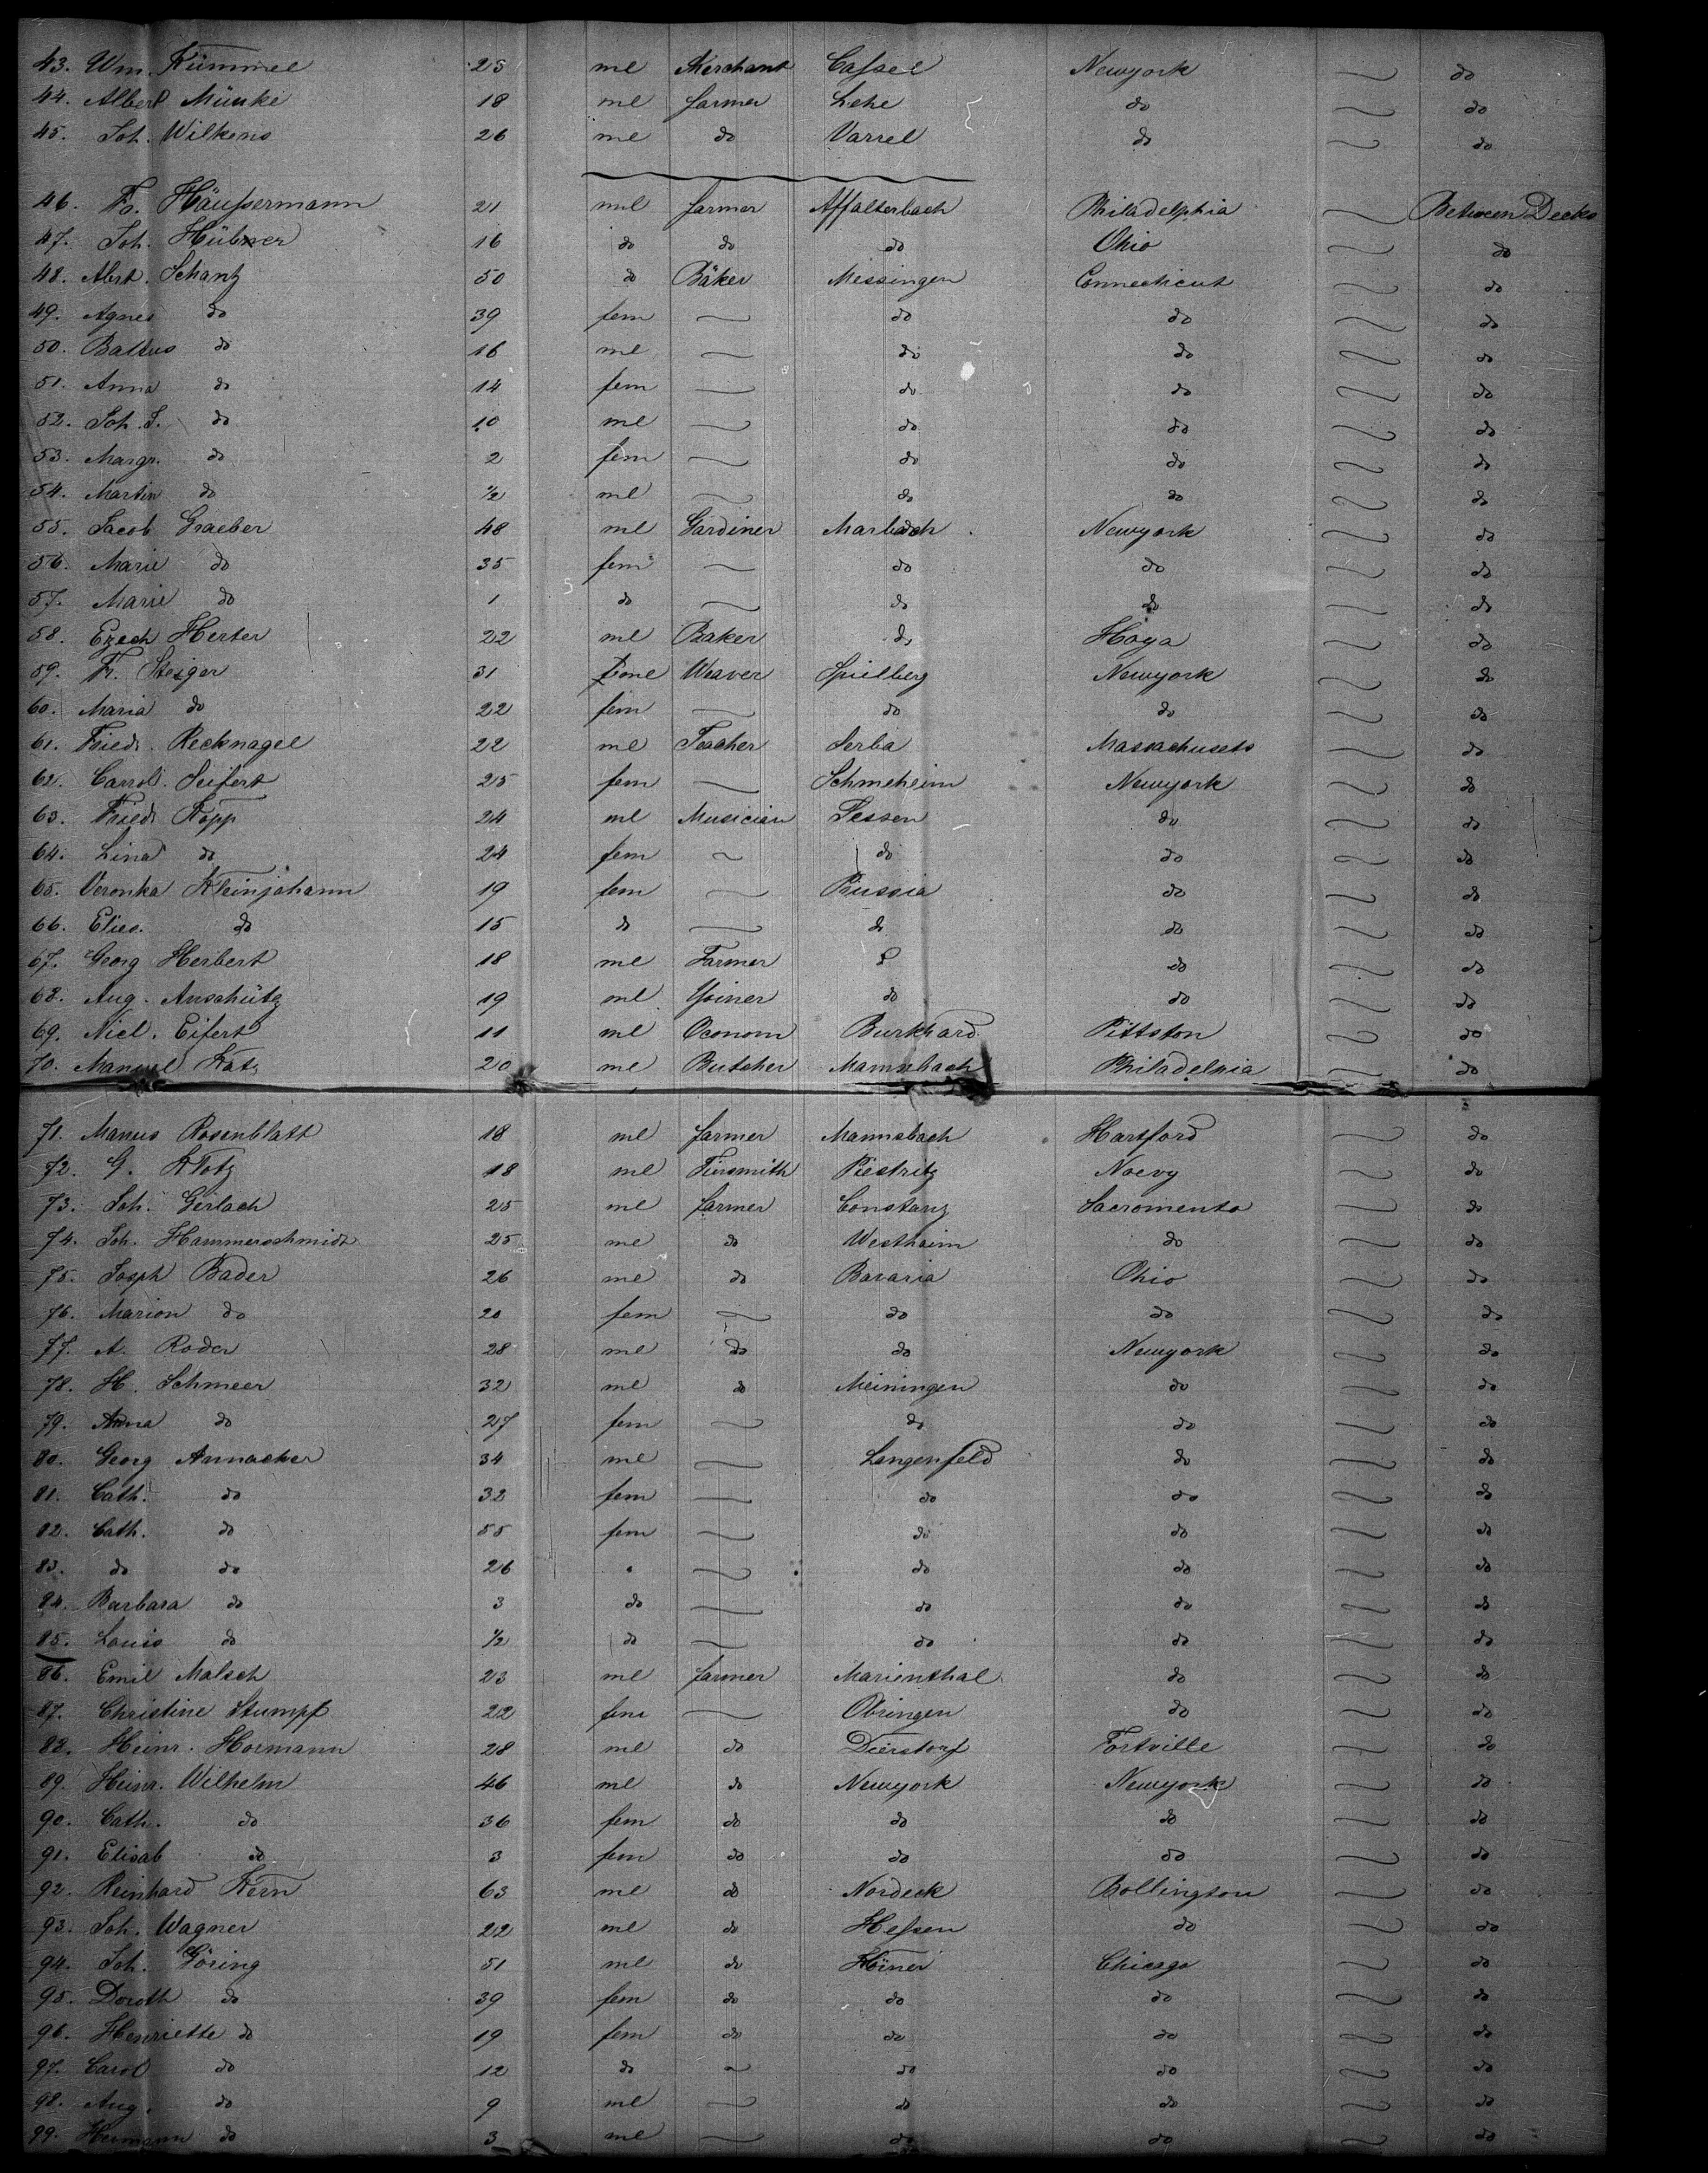 43. Wm. Kümmel 25 ml Merchant Cassel Newyork do
44. Albert Münke 18 ml farmer Lehe do do
45. Joh. Wilkens 26 ml do Varrel do do
46. Fr. Häussermann 21 ml farmer Affalterbach Philadelphia Between Decks
47. Joh. Hübner 16 do do do Ohio do
48. Abrt. Schantz 50 do Bäker Messingen Connecticut do
49. Agnes do 39 fem — do do do
50. Baltus do 16 ml — do do do
51. Anna do 14 fem — do do do
52. Joh. J. do 10 ml — do do do
53. Margr. do 2 fem — do do do
54. Martin do 1/2 ml — do do do
55. Jacob Graeber 48 ml Gardiner Marbach Newyork do
56. Marie do 35 fem — do do do
57. Marie do 1 do — do do do
58. Ezech Herter 22 ml Baker do Hoya do
59. Fr. Steiger 31 ml Weaver Spielberg Newyork do
60. Maria do 22 fem — do do do
61. Friedr. Recknagel 22 ml Teacher Serba Massachusets do
62. Carrol. Seifert 25 fem — Schmeheim Newyork do
63. Friedr Kopp 24 ml Musician Tessen do do
64. Lina do 24 fem ~ do do do
65. Veronka Kleinjohann 19 fem — Prussia do do
66. Elies. do 15 do — do do do
67. Georg Herbert 18 ml Farmer do do
68. Aug. Anschütz 19 ml Yoiner do do do
69. Nicl. Eifert 11 ml Oconom Burkhard Pittston do
70. Manuel Katz 20 ml Butcher Mannsbach Philadelpia do
71. Manus Rosenblatt 18 ml farmer Mannsbach Hartford do
72. G. Klotz 18 ml Tinsmith Piestritz do
73. Joh. Gerlach 25 ml farmer Constanz Sacromento do
74. Joh. Hammerschmidt 25 ml do Westheim do do
75. Joseph Bader 26 ml do Bavaria Ohio do
76. Marion do 20 fem — do do do
77. A. Roder 28 ml do do Newyork do
78. H. Schmeer 32 ml do Meiningen do do
79. Anna do 27 fem — do do do
80. Georg Annacker 34 ml — Langenfeld do do
81. Cath. do 32 fem — do do do
82. Cath. do 55 fem — do do do
83. do do 26 — do do do
84. Barbara do 3 do — do do do
85. Louis do 1/2 do — do do do
86. Emil Malsch 23 ml farmer Marienthal do do
87. Christine Stumpf 22 fem — Obringen do do
88. Heinr. Hormann 28 ml do Dierstorf Fortville do
89. Heinr. Wilhelm 46 ml do Newyork Newyork do
90. Cath. do 36 fem do do do do
91. Elisab do 3 fem do do do do
92. Reinhard Kern 63 ml do Nordeck Bollington do
93. Joh. Wagner 22 ml do Hessen do do
94. Joh. Göring 51 ml do Chicago do
95. Doroth do 39 fem do do do do
96. Henriette do 19 fem do do do do
97. Carol do 12 do ~ do do do
98. Aug. do 9 ml — do do do
99. Hermann do 3 ml — do do do